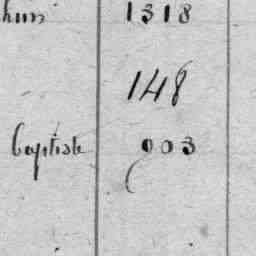 1318
148
Baptiste 903